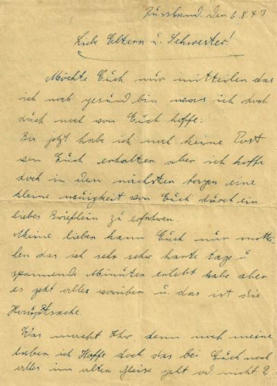 Russland, den 6.8.43
Liebe Eltern u. Schwester!
Möchte Euch nur mitteilen das
ich noch gesund bin was ich doch
auch noch von Euch hoffe.
Bis jetzt habe ich noch keine Post
von Euch erhalten aber ich hoffe
doch in den nächsten tagen eine
kleine neuigkeit von Euch durch ein
liebes Brieflein zu erfahren.
Meine lieben kann Euch nur mittei-
len das ich sehr sehr harte tage u
spannende Minuten erlebt habe aber
es geht alles vorüber u das ist die
Hauptsache.
Was macht Ihr denn noch meine
lieben ich Hoffe doch das bei Euch noch
alles im alten Gleise geht od nicht?